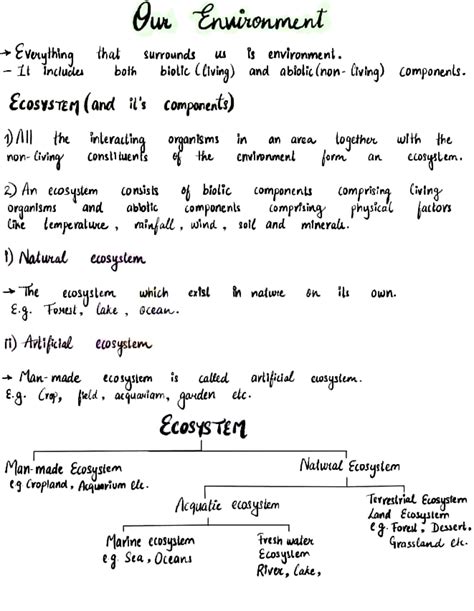 Our Environment
→ Everything that surrounds us is environment.
- It includes both biotic (living) and abiotic (non-living) components.
ECOSYSTEM (and it's components)
1) All the interacting organisms in an area together with the
non-living constituents of the environment form an ecosystem.
2) An ecosystem consists of biotic components comprising living
organisms and abiotic components comprising physical factors
like temperature, rainfall, wind, soil and minerals.
i) Natural ecosystem
→ The ecosystem which exist in nature on its own.
E.g. Forest, lake, ocean.
ii) Artificial ecosystem
→ Man-made ecosystem is called artificial ecosystem.
E.g. Crop, field, acquarium, garden etc.
ECOSYSTEM
Man-made Ecosystem
eg Cropland, Acquarium etc.
Natural Ecosystem
Acquatic ecosystem
Terrestrial Ecosystem
Land Ecosystem
e.g. Forest, Dessert,
Grassland etc.
Marine ecosystem
eg. Sea, Oceans
Fresh water
Ecosystem
River, Lake,